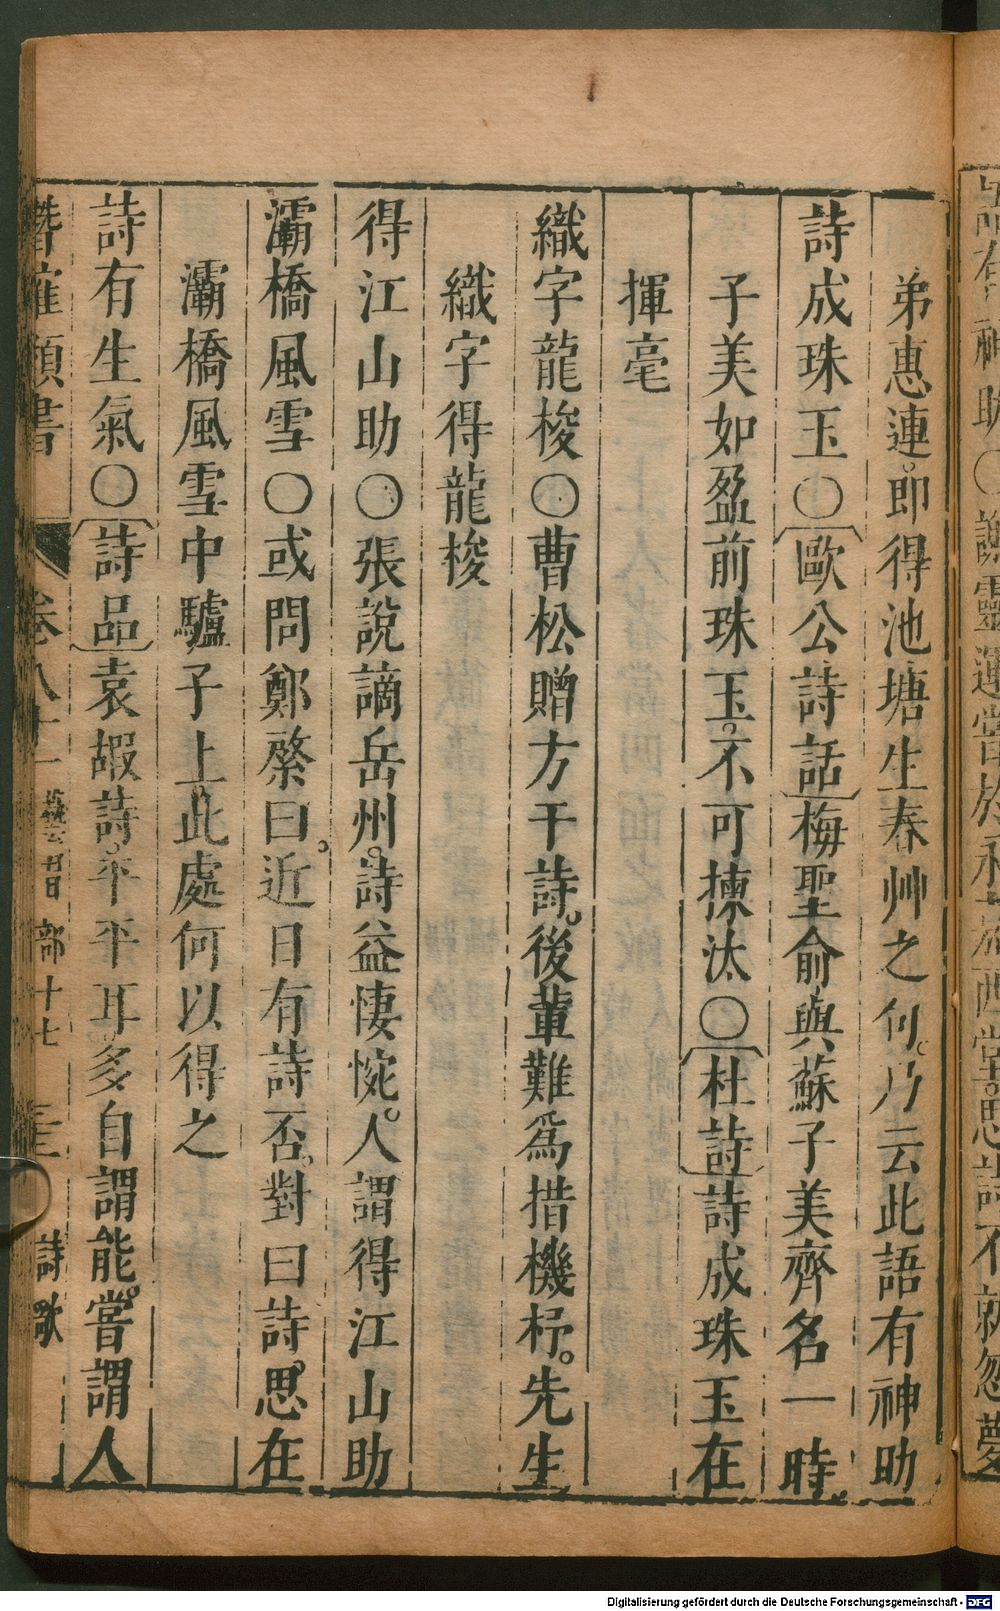 弟惠連。即得池塘生春艸之句。乃云此語有神助
詩成珠玉○歐公詩話梅聖俞與蘇子美齊名一時。
子美如盈前珠玉。不可揀汰○杜詩詩成珠玉在
揮毫
織字龍梭○曹松贈方干詩。後輩難爲措機杼。先生
織字得龍梭
得江山助○張說謫岳州。詩益悽惋。人謂得江山助
灞橋風雪○或問鄭綮曰。近日有詩否。對曰詩思。在
灞橋風雪中驢子上此處何以得之
詩有生氣○詩品袁嘏詩。平平耳多自謂能。嘗謂人
類書
卷八十一
部十七
三
詩歌
Digitalisierung gefördert durch die Deutsche Forschungsgemeinschaft - DFG